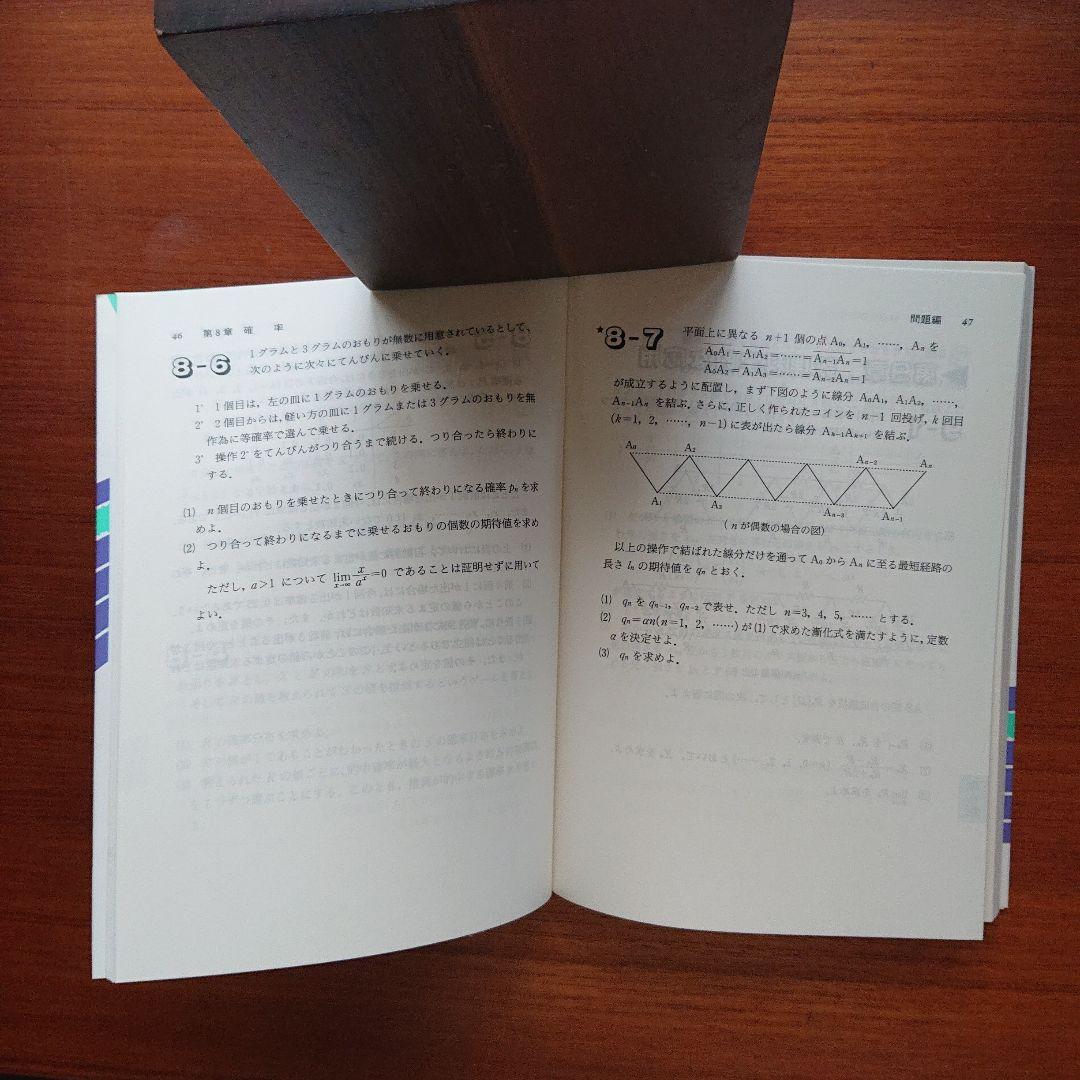 46 第8章 確 率
8-6 1グラムと3グラムのおもりが無数に用意されているとして,
次のように次々にてんびんに乗せていく.
1° 1個目は,左の皿に1グラムのおもりを乗せる.
2° 2個目からは,軽い方の皿に1グラムまたは3グラムのおもりを無
作為に等確率で選んで乗せる.
3° 操作2°をてんびんがつり合うまで続ける.つり合ったら終わりに
する.
(1) n個目のおもりを乗せたときにつり合って終わりになる確率pₙを求
めよ.
(2) つり合って終わりになるまでに乗せるおもりの個数の期待値を求め
よ.
ただし,a>1 について lim_{x→∞} x/aˣ=0 であることは証明せずに用いて
よい.
問題編 47
★8-7 平面上に異なる n+1 個の点 A₀, A₁, ……, Aₙ を
A₀A₁=A₁A₂=……=Aₙ₋₁Aₙ=1
A₀A₂=A₁A₃=……=Aₙ₋₂Aₙ=1
が成立するように配置し,まず下図のように線分 A₀A₁, A₁A₂, ……,
Aₙ₋₁Aₙ を結ぶ.さらに,正しく作られたコインを n-1 回投げ,k回目
(k=1, 2, ……, n-1)に表が出たら線分 Aₖ₋₁Aₖ₊₁ を結ぶ.
A₀ A₂ Aₙ₋₂ Aₙ
A₁ A₃ Aₙ₋₃ Aₙ₋₁
(nが偶数の場合の図)
以上の操作で結ばれた線分だけを通って A₀ から Aₙ に至る最短経路の
長さ lₙ の期待値を qₙ とおく.
(1) qₙ を qₙ₋₁, qₙ₋₂ で表せ.ただし n=3, 4, 5, …… とする.
(2) qₙ=αn(n=1, 2, ……)が(1)で求めた漸化式を満たすように,定数
α を決定せよ.
(3) qₙ を求めよ.